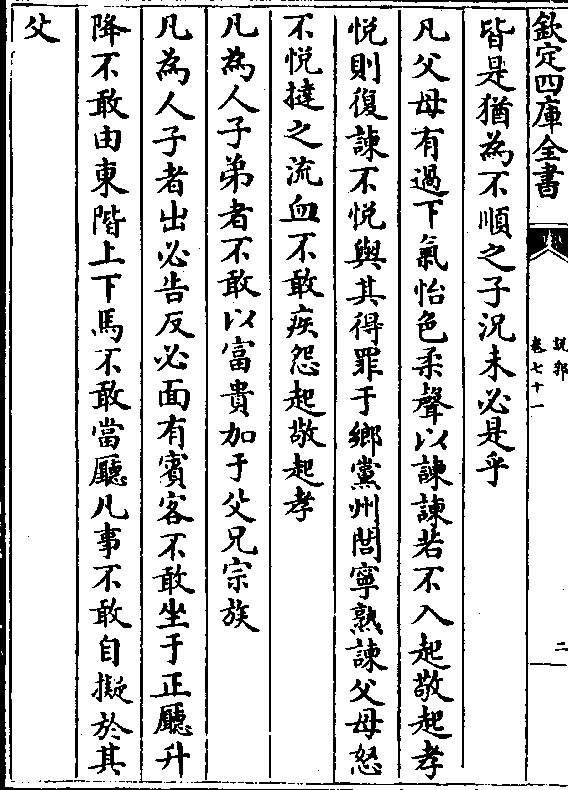 欽定四庫全書
說郛
卷七十一
二
皆是猶為不順之子況未必是乎
凡父母有過下氣怡色柔聲以諫諫若不入起敬起孝
悦則復諫不悦與其得罪于鄉黨州閭寧熟諫父母怒
不悦撻之流血不敢疾怨起敬起孝
凡為人子弟者不敢以富貴加于父兄宗族
凡為人子者出必告反必面有賓客不敢坐于正廳升
降不敢由東階上下馬不敢當廳凡事不敢自擬於其
父